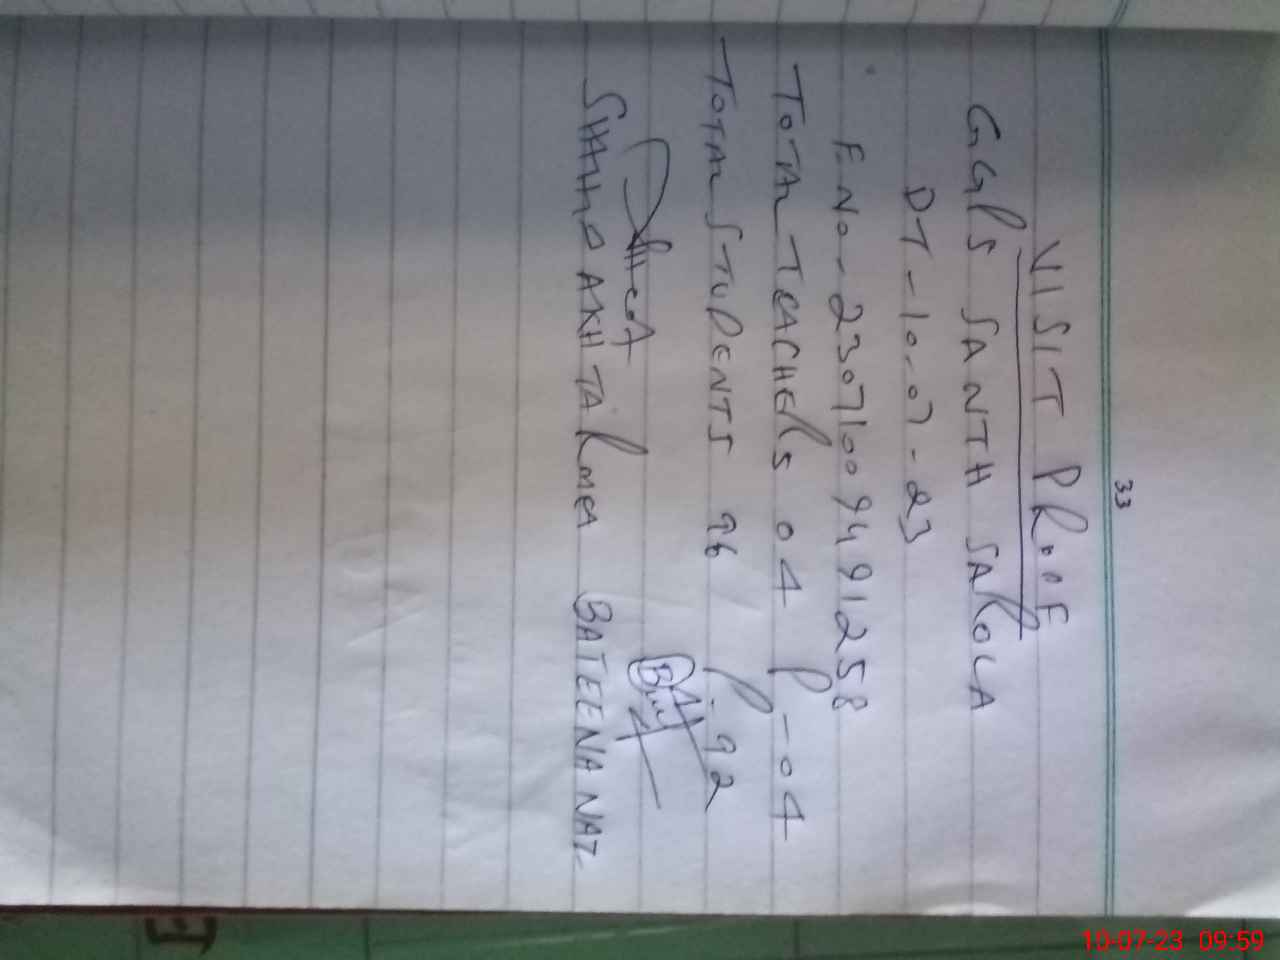 33
VISIT PROOF
GGPS SANTH SAROLA
DT-10-07-23
F.No-230710094991258
TOTAL TEACHERS 04 P-04
TOTAL STUDENTS 96 P-92
SHAHO AKHTAR BATEENA NAZ
10-07-23 09:59